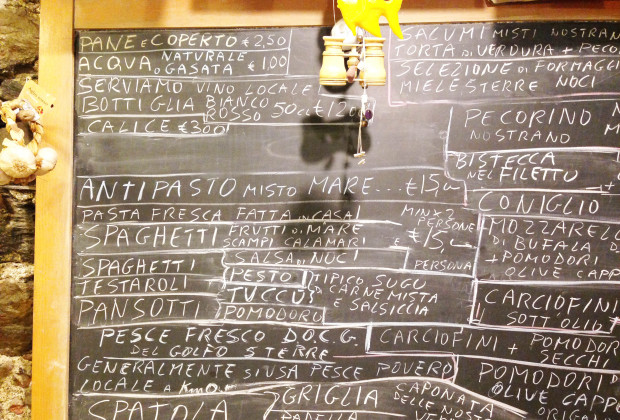 PANE E COPERTO € 2,50
ACQUA NATURALE O GASATA € 1,00
SERVIAMO VINO LOCALE
BOTTIGLIA BIANCO ROSSO 50cl €
CALICE € 3,00
ANTIPASTO MISTO MARE...€ 15,
PASTA FRESCA FATTA IN CASA!
SPAGHETTI FRUTTI DI MARE
SCAMPI CALAMARI
MIN X 2
PERSONE
€ 15,
PERSONA
SPAGHETTI
TESTAROLI
PANSOTTI
SALSA DI NOCI
PESTO
TUCCUS
POMODORO
TIPICO SUGO
DI CARNE MISTA
E SALSICCIA
PESCE FRESCO D.O.C.G.
DEL GOLFO 5 TERRE
GENERALMENTE SI USA PESCE POVERO
LOCALE A Km0
SPATOLA
GRIGLIA
PADELLA
CAPONATA
DELLE NOS
VERD
SALUMI MISTI NOSTRANI
TORTA DI VERDURA + PECO
SELEZIONE DI FORMAGGI
MIELE 5 TERRE NOCI
PECORINO
NOSTRANO
BISTECCA
NEL FILETTO
CONIGLIO
MOZZARELL
DI BUFALA D
+ POMODORI
OLIVE CAPP
CARCIOFINI
SOTT'OLIO
CARCIOFINI + POMODOR
SECCHI
POMODORI
OLIVE CAPP